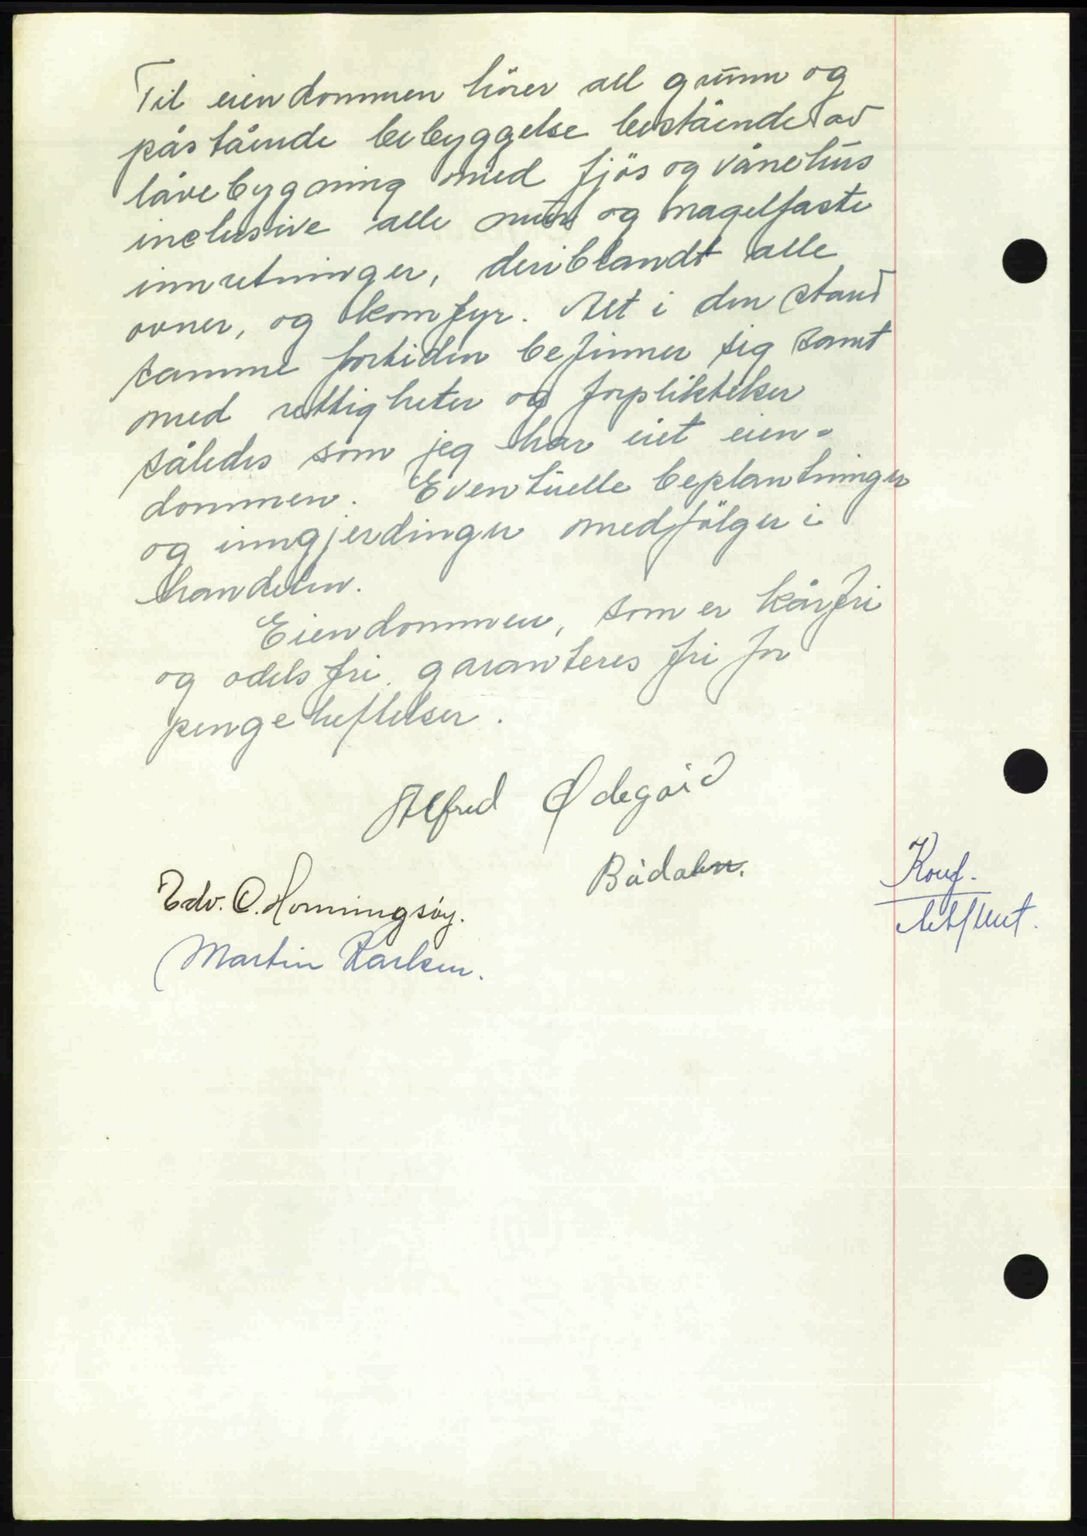 Til eiendommen hörer all grunn og
påstående bebyggelse bestående av
låvebygning med fjös og vånehus
inclusive alle mur og nagelfaste
innretninger, deriblandt alle
ovner, og komfyr. Alt i den stand
samme fortiden befinner sig samt
med rettigheter og forpliktelser
således som jeg har eiet eien-
dommen. Eventuelle beplantninger
og inngjerdinger medfölger i
handelen.
Eiendommen, som er kårfri
og odelsfri, garanteres fri for
pengeheftelser.
Alfred Ødegård
Bådalen.
Edv. O. Honningsøy.
Martin Karlsen.
Konf.